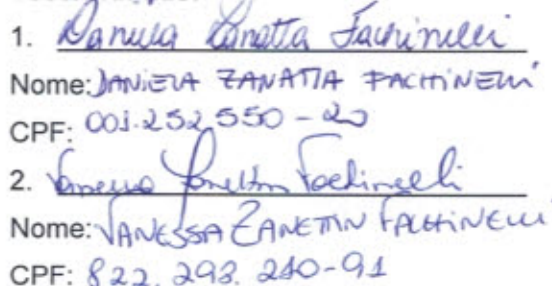 1. Daniela Zanatta Fachinelli
Nome: DANIELA ZANATTA FACHINELLI
CPF: 001.252.550-20
2. Vanessa Zanettin Fachinelli
Nome: VANESSA ZANETTIN FACHINELLI
CPF: 822.293.210-91